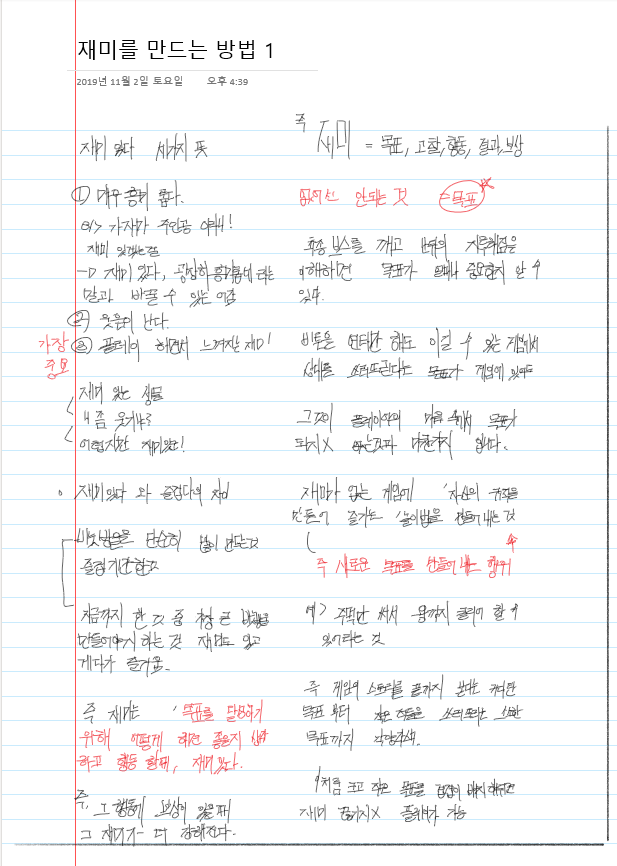 재미를 만드는 방법 1
2019년 11월 2일 토요일 오후 4:39
재미 있다 세가지 뜻
① 매우 흥미 롭다.
예> 가자가 주인공 이래!
재미 있겠는걸
→ 재미 있다, 굉장히 흥미롭네 라는
말과 바꿀 수 있는 어감
② 웃음이 난다.
가장
중요
③ 플레이 하면서 느껴지는 재미
재미 있는 생물
좀 웃기냐?
어렵지만 재미있는!
재미있다 와 즐겁다의 차이
비눗방울을 단순히 많이 만드는것
즐겁기만 한것
지금까지 한 것 중 가장 큰
만들어야지 하는 것 재미도 있고
게다가 즐거움.
즉 재미는 '목표를 달성하기
위해 어떻게 하면 좋을지 생각
하고 행동 할때, 재미있다.
즉, 그 행동에 보상이 있을때
그 재미가 더 강해진다.
즉
재미 = 목표, 고찰, 행동, 결과, 보상
없어선 안되는 것 = 목표
최종 보스를 깨고 난 뒤의 지루해짐을
이해하면 목표가 얼마나 중요한지 알 수
있다.
버튼을 연타만 해도 이길 수 있는 게임에서
상대를 쓰러뜨린다는 목표가 게임에 있어도
그것이 플레이어의 마음 속에서 목표가
되지X 않는것과 마찬가지 입니다.
재미가 없는 게임에 '자신의 규칙을
만들어 즐기는 '놀이법을 만들어 내는 것
즉 새로운 목표를 만들어 내는 행위
예> 주먹만 써서 끝까지 클리어 할 수
있을까라는 것
즉 게임의 스토리를 끝까지 본다는 커다란
목표 부터 작은 적들을 쓰러뜨리는 소소한
목표까지 각양각색.
이처럼 크고 작은 목표를 배치해두면
재미 끊기지X 플레이가 가능